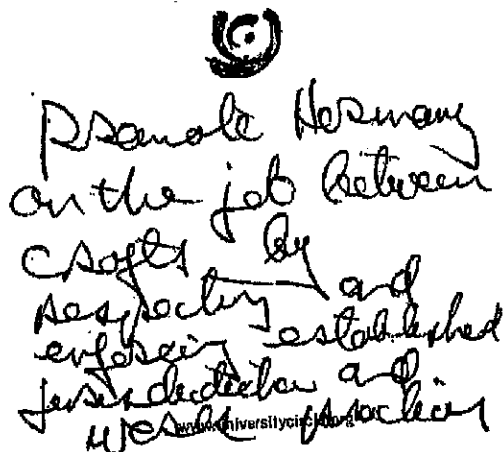 Promote Harmony
on the job between
crafts by
respecting and
enforcing established
jurisdiction and
work practices
www.universitycircle.org